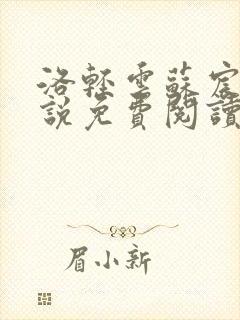 洛輕雲蘇宸
說免費閱讀
眉小新